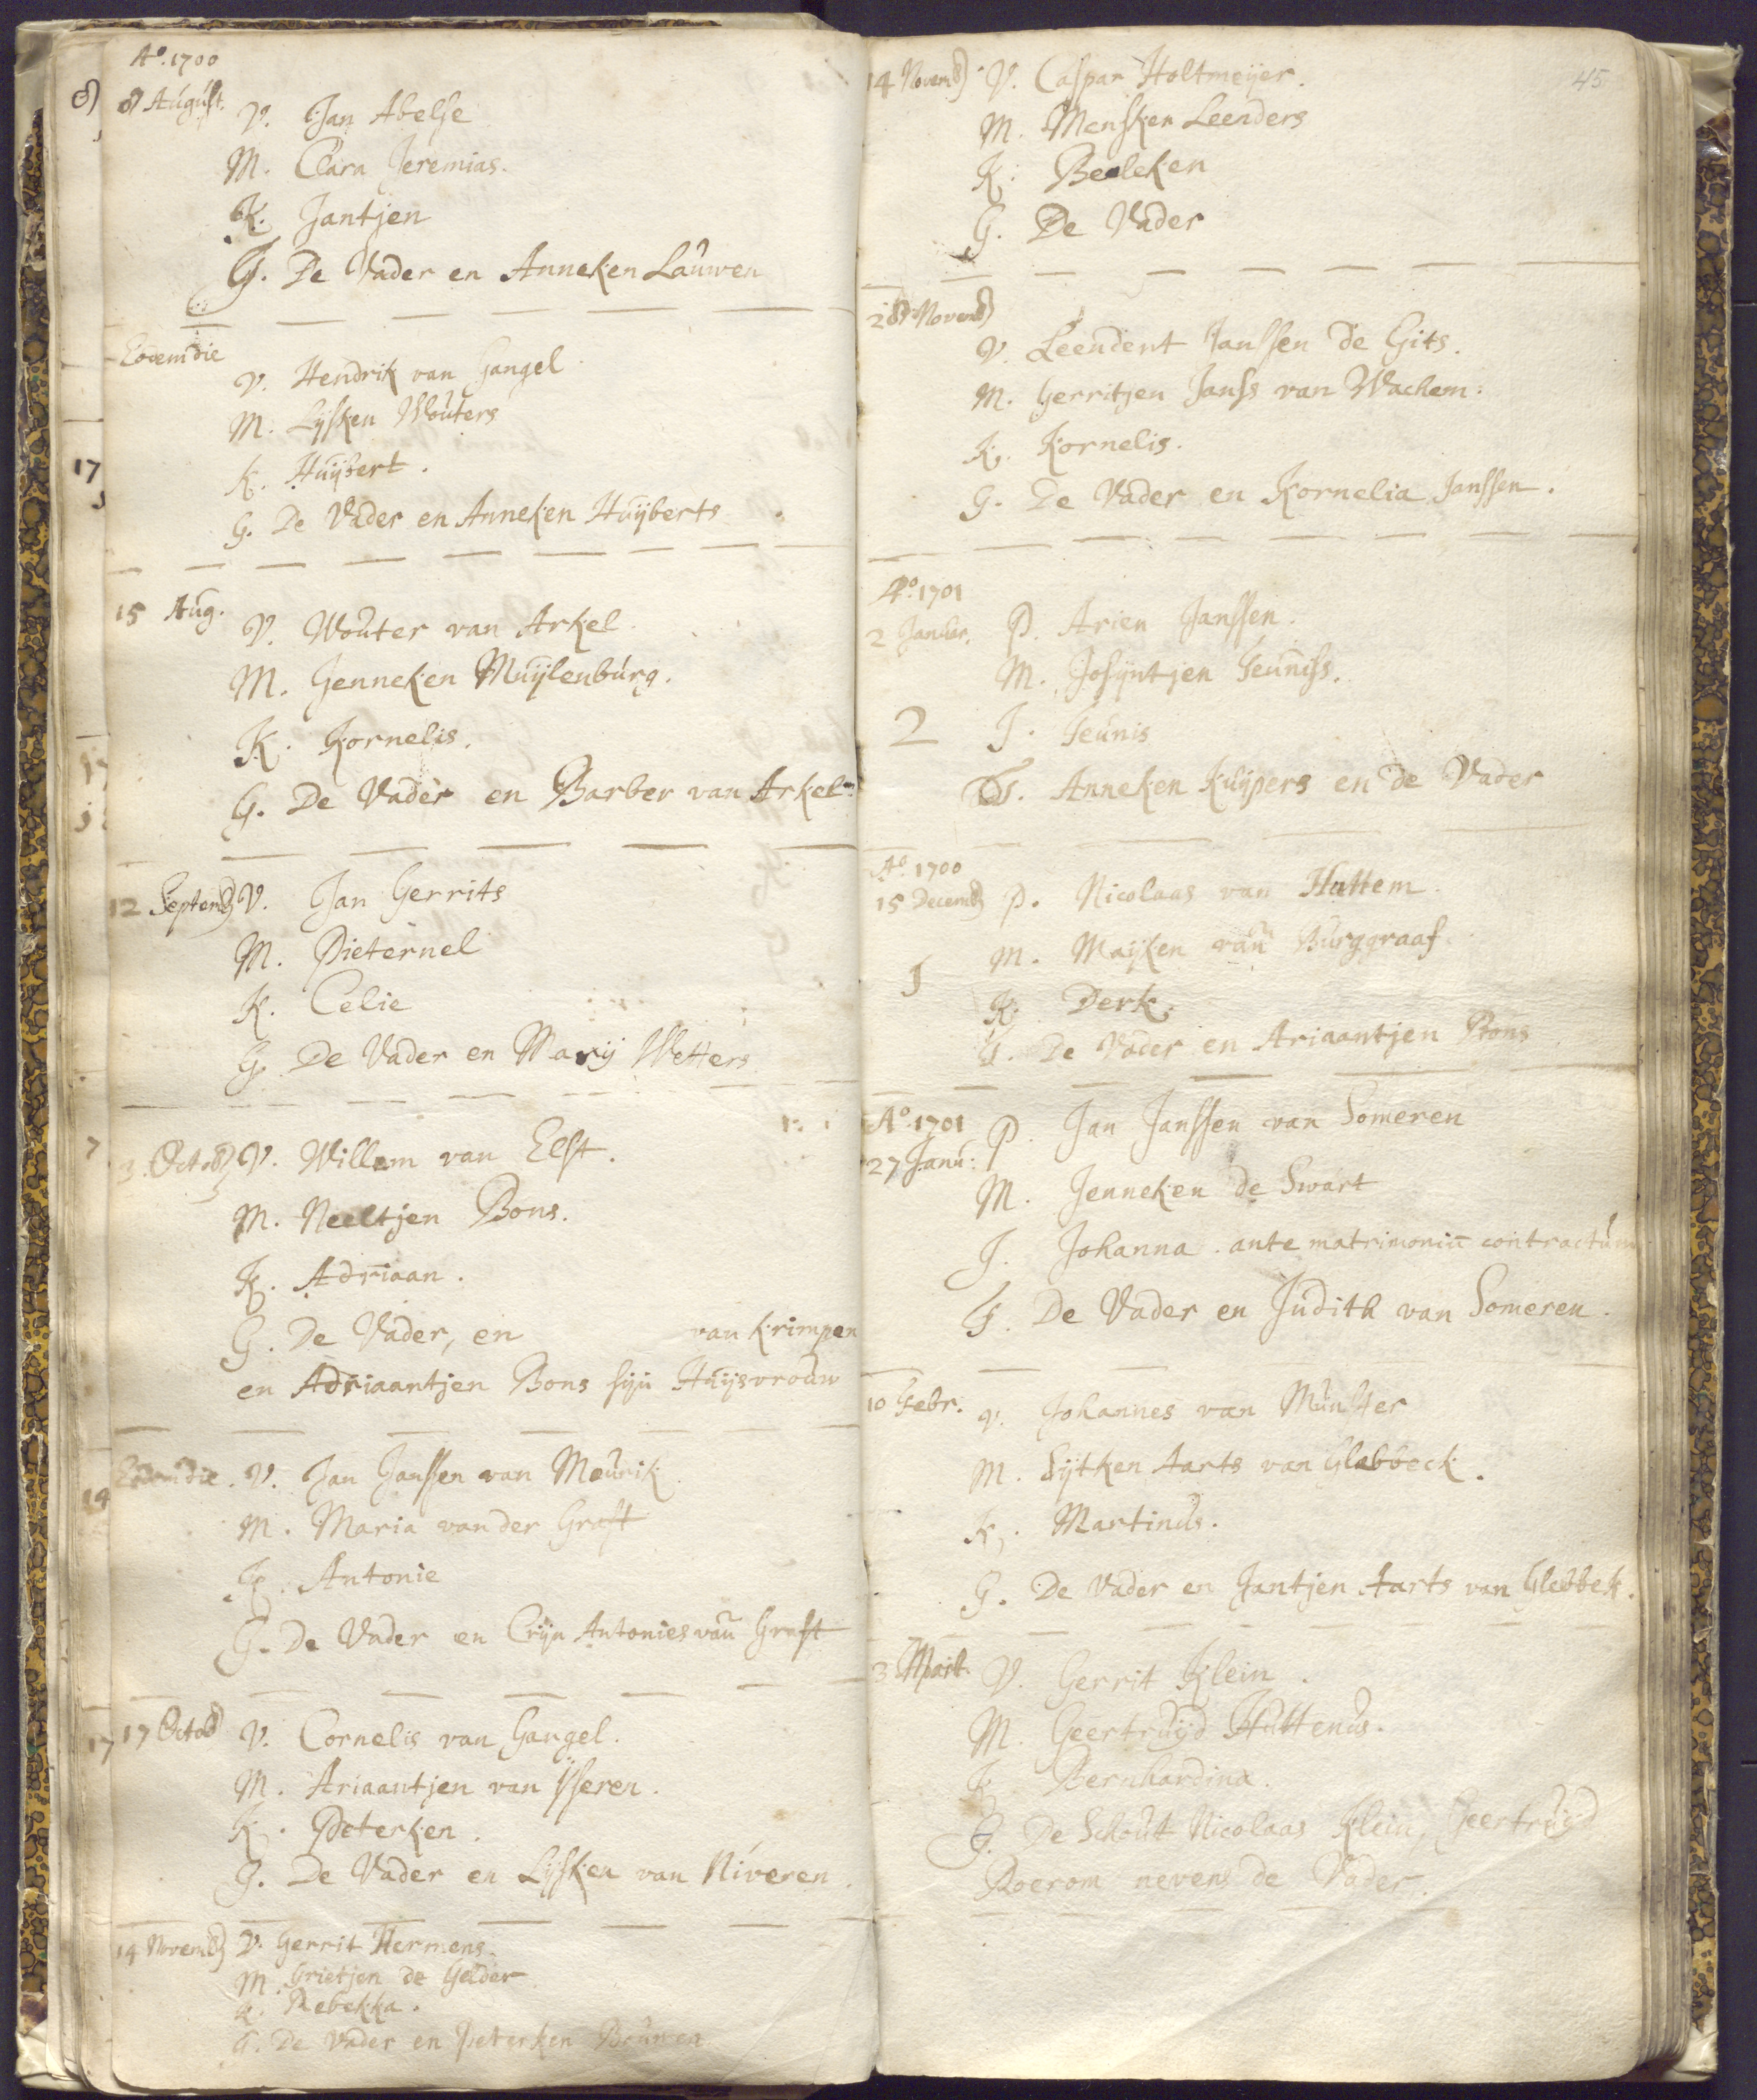 Aº. 1700
8 August. V. Jan Abelse
M. Clara Jeremias.
K. Jantjen
G. De Vader en Anneken Lauwen
Eodem die
V. Hendrik van Gangel
M. Lijsken Wouters
K. Huijbert.
G. De Vader en Anneken Huijberts
15 Aug. V. Wouter van Arkel
M. Jenneken Muijlenburg.
K. Kornelis.
G. De Vader en Barber van Arkel
12 Septemb V. Jan Gerrits
M. Pieternel
K. Celie
G. De Vader en Marij Wetters
3. Octob V. Willem van Elst.
M. Neeltjen Bons.
K. Adriaan.
G. De Vader, en van Krimpen
en Adriaantjen Bons sijn Huijsvrouw
Eodem die. V. Jan Janssen van Mourik
M. Maria van der Graft
K. Antonie
G. De Vader en Crijn Antonies van Graft
17 Octob V. Cornelis van Gangel.
M. Ariaantjen van Isseren.
K. Peterken.
G. De Vader en Lijsken van Niveren.
14 Novemb V. Gerrit Hermens.
M. Grietjen de Gelder
K. Rebekka.
G. De Vader en Peterken Bouwen
45
14 Novemb V. Caspar Holtmeijer.
M. Mensken Leenders
K. Beeleken
G. De Vader
28 Novemb
V. Leendert Janssen de Gits.
M. Gerritjen Janss van Wachem:
K. Kornelis.
G. De Vader en Kornelia Janssen.
Aº. 1701
2 Januar. P. Arien Janssen.
M. Josijntjen Teuniss.
2 I. Teunis
G. Anneken Kuijpers en de Vader
Aº. 1700
15 Decemb P. Nicolaas van Hattem
M. Maijken van Burggraaf.
1 K. Derk.
G. De Vader en Ariaantjen Pons
Aº. 1701 P. Jan Janssen van Someren
27 Janu:
M. Jenneken de Swart
I. Johanna. ante matrimoniū contractum
G. De Vader en Judith van Someren.
10 Febr. V. Johannes van Munster
M. Sijtken Aarts van Glabbeck.
K. Martinus.
G. De Vader en Jantjen Aarts van Glebbek.
3 Mart. V. Gerrit Klein.
M. Geertruijd Huttenus.
K. Bernhardina.
G. De Schout Nicolaas Klein, Geertruijd
Roerom nevens de Vader.